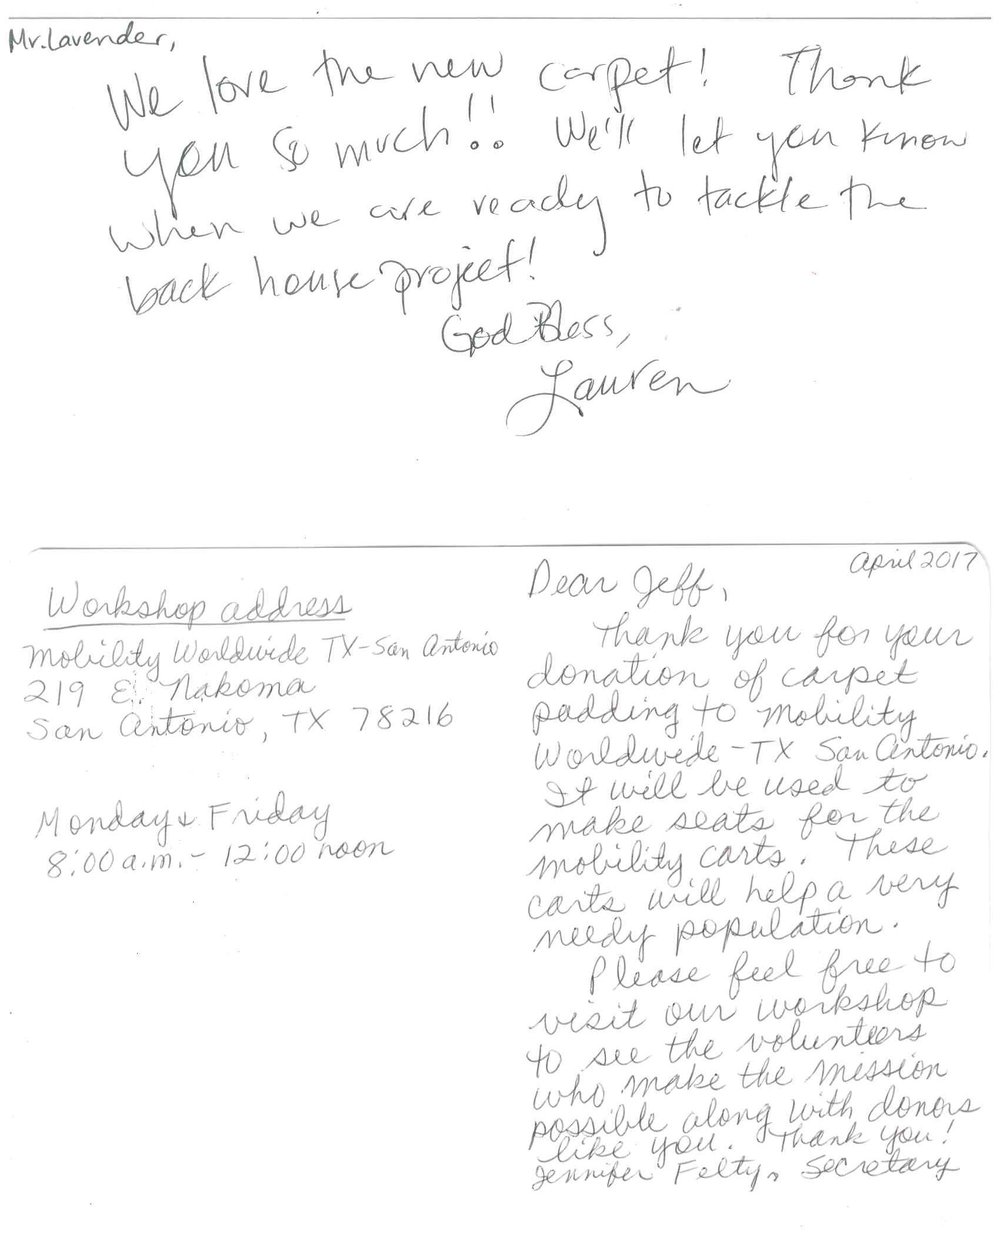 Mr. Lavender,
We love the new carpet! Thank
you so much!! We'll let you know
when we are ready to tackle the
back house project!
God Bless,
Lauren
Workshop address
Mobility Worldwide TX-San Antonio
219 E. Nakoma
San Antonio, TX 78216
Monday & Friday
8:00 a.m. - 12:00 noon
April 2017
Dear Jeff,
Thank you for your
donation of carpet
padding to Mobility
Worldwide - TX San Antonio.
It will be used to
make seats for the
mobility carts. These
carts will help a very
needy population.
Please feel free to
visit our workshop
to see the volunteers
who make the mission
possible along with donors
like you. Thank you!
Jennifer Felty, Secretary